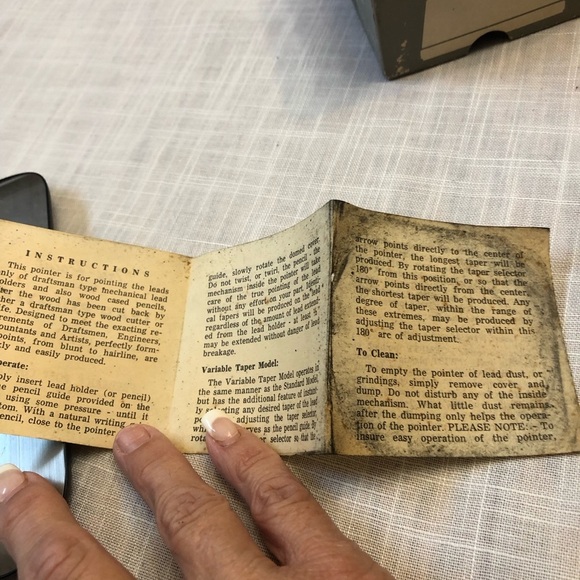 INSTRUCTIONS
This pointer is for pointing the leads
only of draftsman type mechanical lead
holders and also wood cased pencils,
after the wood has been cut back by
either a draftsman type wood cutter or
knife. Designed to meet the exacting re-
quirements of Draftsmen, Engineers,
Accountants and Artists, perfectly form-
points, from blunt to hairline, are
and easily produced.
Operate:
insert lead holder (or pencil)
pencil guide provided on the
using some pressure - until it
bottom. With a natural writing
pencil, close to the pointer
guide, slowly rotate the domed cover.
Do not twist, or twirl, the pencil - the
mechanism inside the pointer will take
care of the true pointing of the lead
without any effort on your part. Identi-
cal tapers will be produced on the lead
regardless of the amount of lead extend-
ed from the lead holder - at least
may be extended without danger of lead
breakage.
Variable Taper Model:
The Variable Taper Model operates in
the same manner as the Standard Model,
but has the additional feature of instant-
ly selecting any desired taper of the lead
adjusting the taper selector,
serves as the pencil guide. By
rotating selector so that the
arrow points directly to the center of
the pointer, the longest taper will be
produced. By rotating the taper selector
180° from this position, or so that the
arrow points directly from the center,
the shortest taper will be produced. Any
degree of taper, within the range of
these extremes, may be produced by
adjusting the taper selector within this
180° arc of adjustment.
To Clean:
To empty the pointer of lead dust, or
grindings, simply remove cover and
dump. Do not disturb any of the inside
mechanism. What little dust remains
after the dumping only helps the opera-
tion of the pointer. PLEASE NOTE: - To
insure easy operation of the pointer,